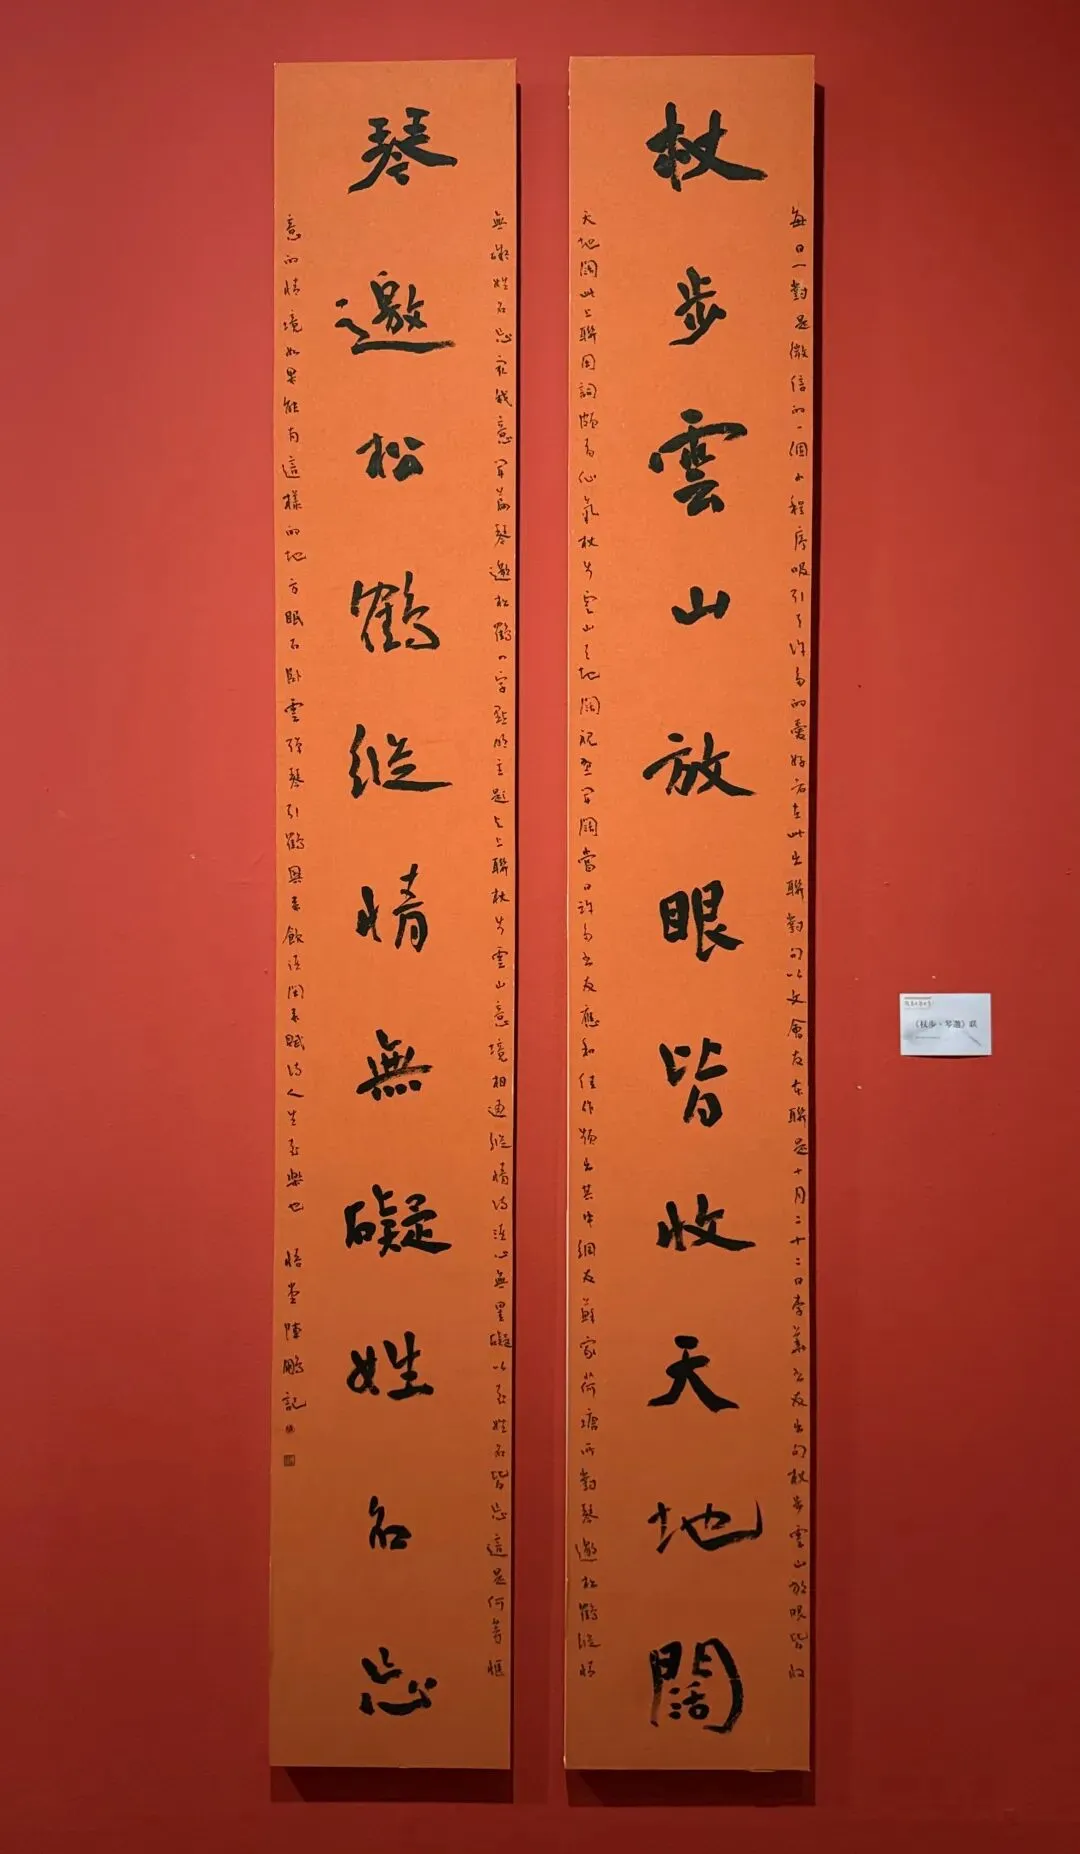 杖步雲山放眼皆收天地闊
每日一對是微信的一個小程序吸引了許多的愛好者在此出聯對句以文會友本聯是十月二十二日李美玉友出句杖步雲山放眼皆收
天地闊此上聯用詞頗為心氣杖步雲山天地闊視野開闊當日許多友應和佳作頻出其中網友蘇家荷塘所對琴邀松鶴縱情
琴邀松鶴縱情無礙姓名忘
無礙姓名忘意開篇琴邀松鶴四字點明主題與上聯杖步雲山意境相通縱情心無罣礙以至姓名皆忘這是何等愜
意的情境如果能有這樣的地方眠石卧雲弹琴引鶴興來飲酒閑來賦詩人生至樂也 悟堂陳鵬記
《杖步·琴邀》联